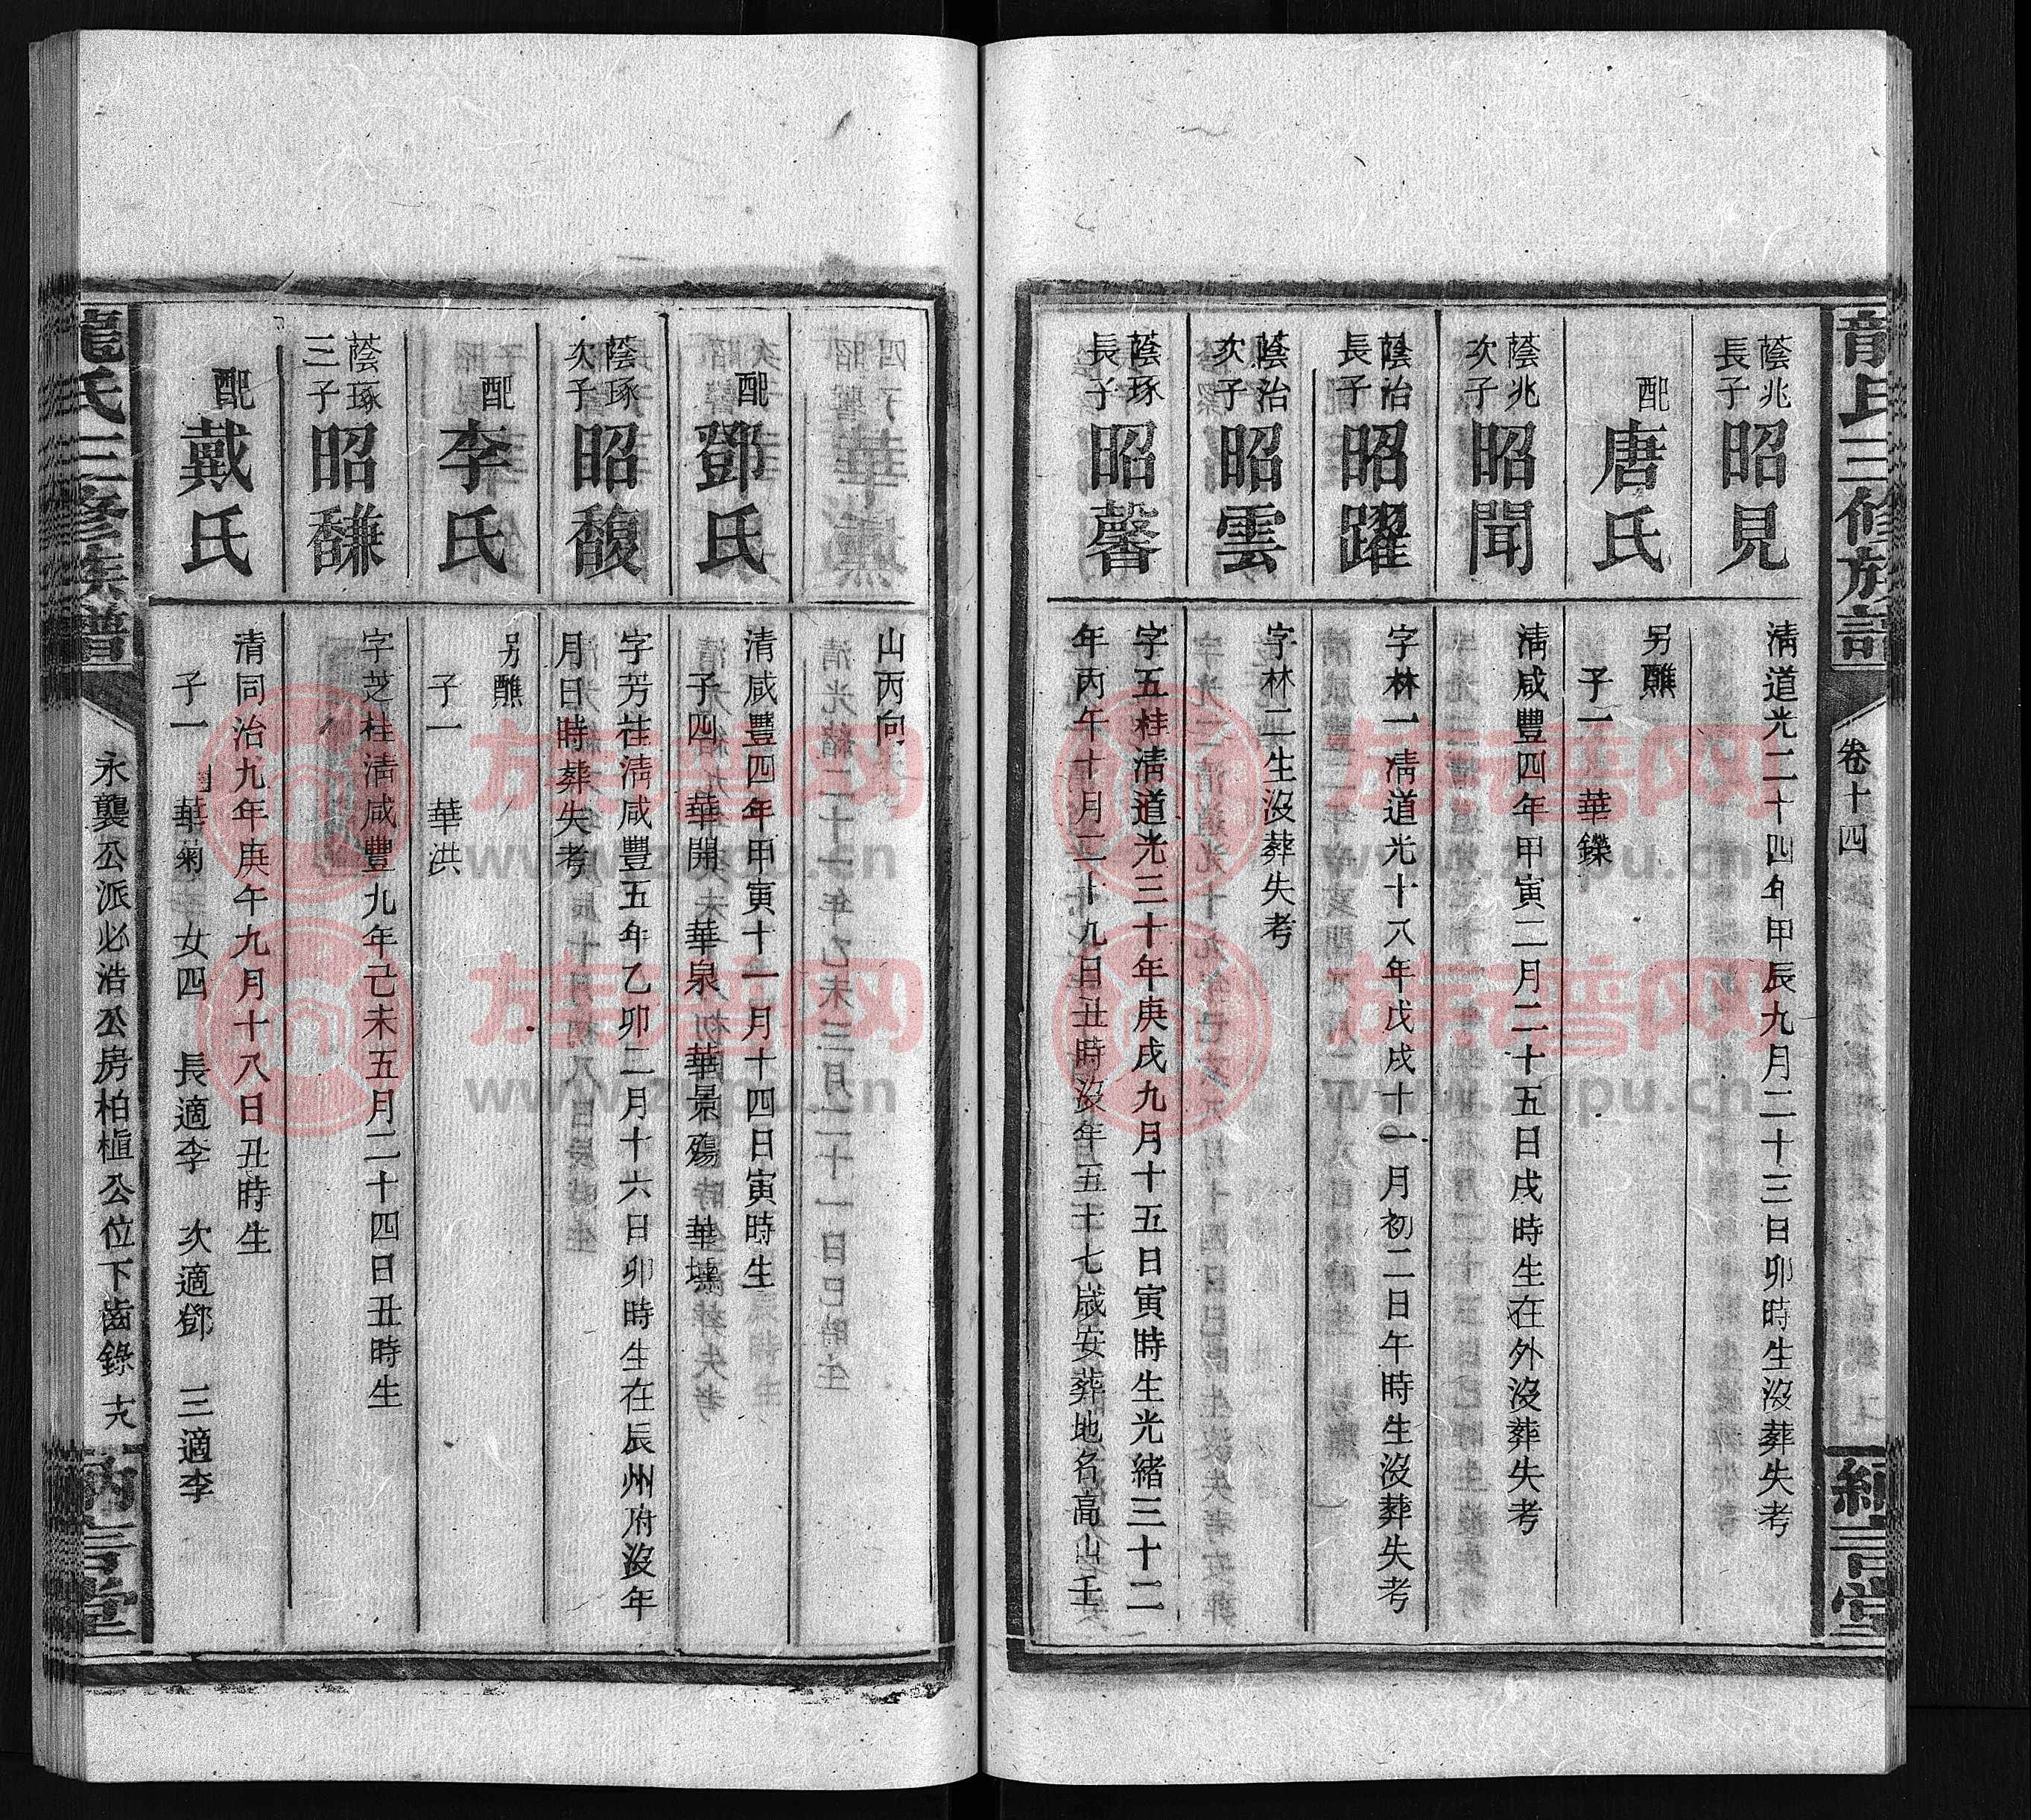 龍氏三修族譜
卷十四
蔭兆長子
昭見
清道光二十四年甲辰九月二十三日卯時生沒葬失考
配
唐氏
另醮
子一 華鑠
蔭兆次子
昭聞
清咸豐四年甲寅二月二十五日戌時生在外沒葬失考
蔭治長子
昭躍
字林一清道光十八年戊戌十一月初二日午時生沒葬失考
蔭治次子
昭雲
字林二生沒葬失考
蔭琢長子
昭馨
字五桂清道光三十年庚戌九月十五日寅時生光緒三十二
年丙午十月二十九日丑時沒年五十七歲安葬地名高山壬
山丙向
配
鄧氏
清咸豐四年甲寅十一月十四日寅時生
子四 華開 華泉 華景殤 華
蔭琢次子
昭馥
字芳桂清咸豐五年乙卯二月十六日卯時生在辰州府沒年
月日時葬失考
配
李氏
另醮
子一 華洪
蔭琢三子
昭馦
字芝桂清咸豐九年己未五月二十四日丑時生
配
戴氏
清同治九年庚午九月十八日丑時生
子一 華菊 女四 長適李 次適鄧 三適李
龍氏三修族譜
永襲公派必浩公房柏植公位下齒錄
納言堂
族譜网
www.zupu.cn
族譜网
www.zupu.cn
族譜网
www.zupu.cn
族譜网
www.zupu.cn